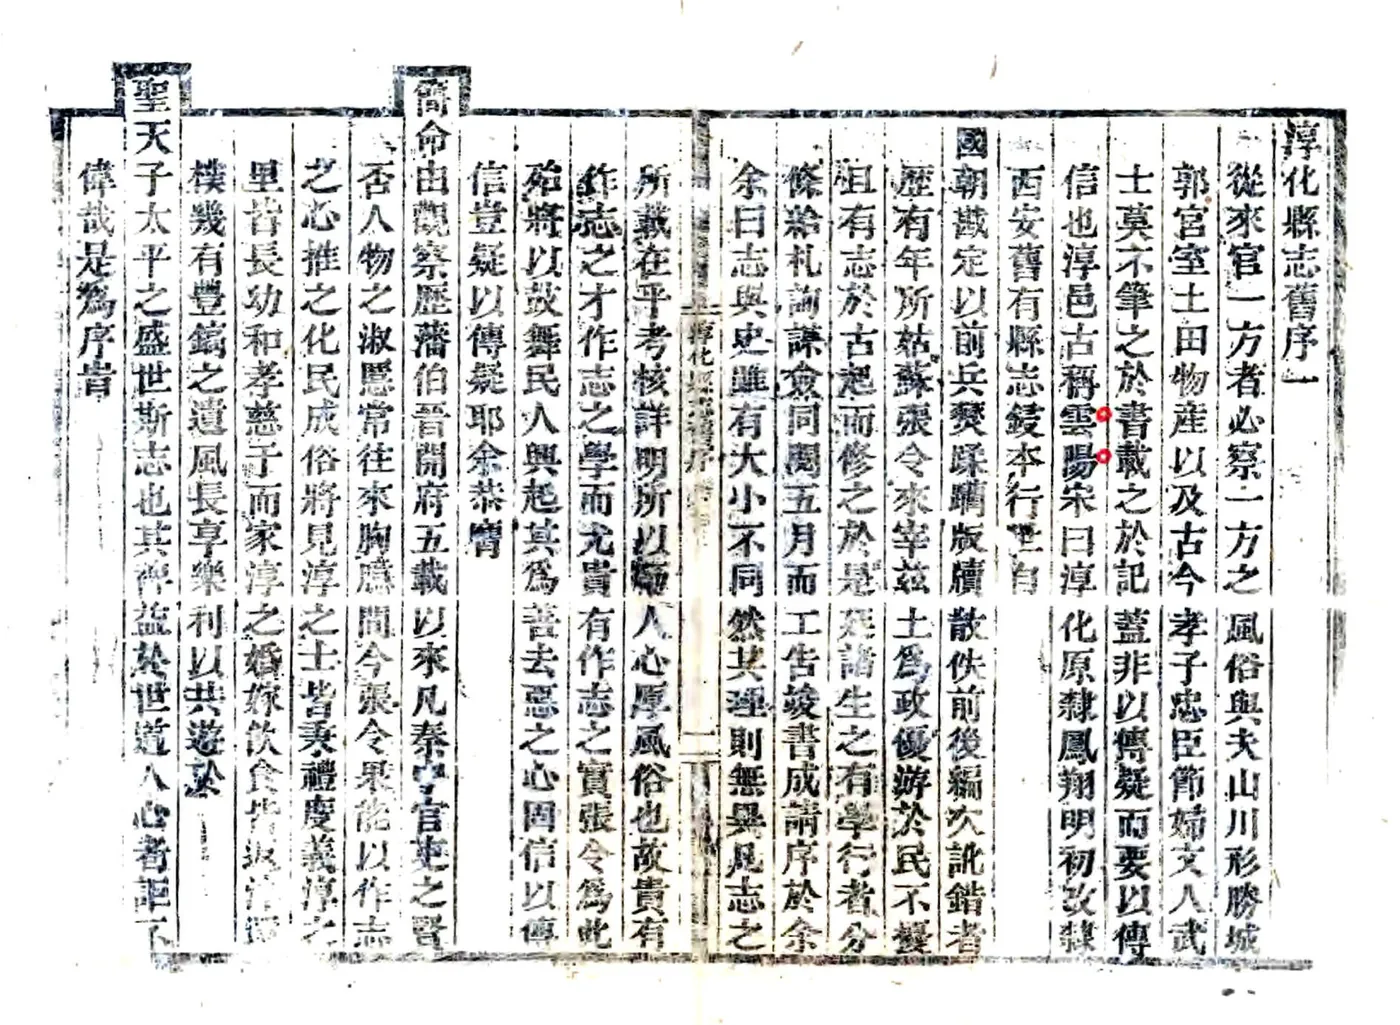 淳化縣志舊序一
從來官一方者必察一方之風俗與夫山川形勝城
郭宮室土田物産以及古今孝子忠臣節婦文人武
士莫不筆之於書載之於記蓋非以傳疑而要以傳
信也淳邑古稱雲陽宋曰淳化原隸鳳翔明初改隸
西安舊有縣志鋟本行世自
國朝戡定以前兵燹蹂躪版牘散佚前後編次訛錯者
歷有年所姑蘇張令來宰茲土爲政優游於民不擾
且有志於古起而修之於是延諸生之有學行者分
條給札詢謀僉同閱五月而工告竣書成請序於余
余曰志與史雖有大小不同然其理則無異凡志之
淳化縣志舊序
二
所載在乎考核詳明所以師人心厚風俗也故貴有
作志之才作志之學而尤貴有作志之實張令爲此
殆將以鼓舞民人興起其爲善去惡之心固信以傳
信豈疑以傳疑耶余恭膺
簡命由觀察歷藩伯晉開府五載以來凡秦中官吏之賢
否人物之淑慝常往來胸臆間今張令果能以作志
之心推之化民成俗將見淳之士皆秉禮度義淳之
里皆長幼和孝慈于而家淳之婚嫁飲食皆返淳還
樸幾有豐鎬之遺風長享樂利以共遊於
聖天子太平之盛世斯志也其裨益於世道人心者詎不
偉哉是爲序旹